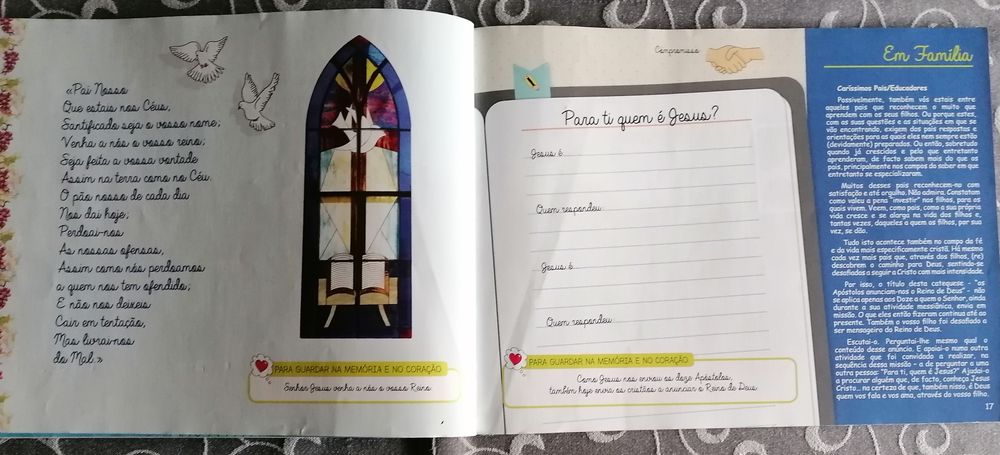 «Pai Nosso
Que estais nos Céus,
Santificado seja o vosso nome;
Venha a nós o vosso reino;
Seja feita a vossa vontade
Assim na terra como no Céu.
O pão nosso de cada dia
Nos dai hoje;
Perdoai-nos
As nossas ofensas,
Assim como nós perdoamos
a quem nos tem ofendido;
E não nos deixeis
Cair em tentação,
Mas livrai-nos
do Mal.»
PARA GUARDAR NA MEMÓRIA E NO CORAÇÃO
Senhor Jesus venha a nós o vosso Reino.
Compromisso
Para ti quem é Jesus?
Jesus é
Quem respondeu:
Jesus é
Quem respondeu:
PARA GUARDAR NA MEMÓRIA E NO CORAÇÃO
Como Jesus nos enviou os doze Apóstolos,
também hoje envia os cristãos a anunciar o Reino de Deus.
Em Família
Caríssimos Pais/Educadores
Possivelmente, também vós estais entre
aqueles pais que reconhecem o muito que
aprendem com os seus filhos. Ou porque estes,
com as suas questões e as situações em que se
vão encontrando, exigem dos pais respostas e
orientações para as quais eles nem sempre estão
(devidamente) preparados. Ou então, sobretudo
quando já crescidos e pelo que entretanto
aprenderam, de facto sabem mais do que os
pais, principalmente nos campos do saber em que
entretanto se especializaram.
Muitos desses pais reconhecem-no com
satisfação e até orgulho. Não admira. Constatam
como valeu a pena "investir" nos filhos, para os
quais vivem. Veem, como pais, como a sua própria
vida cresce e se alarga na vida dos filhos e,
tantas vezes, daqueles a quem os filhos, por sua
vez, se dão.
Tudo isto acontece também no campo da fé
e da vida mais especificamente cristã. Há mesmo
cada vez mais pais que, através dos filhos, (re)
descobrem o caminho para Deus, sentindo-se
desafiados a seguir a Cristo com mais intensidade.
Por isso, o título desta catequese - "os
Apóstolos anunciam-nos o Reino de Deus" - não
se aplica apenas aos Doze a quem o Senhor, ainda
durante a sua atividade messiânica, envia em
missão. O que eles então fizeram continua até ao
presente. Também o vosso filho foi desafiado a
ser mensageiro do Reino de Deus.
Escutai-o. Perguntai-lhe mesmo qual o
conteúdo desse anúncio. E apoiai-o numa outra
atividade que foi convidado a realizar, na
sequência dessa missão - a de perguntar a uma
outra pessoa: "Para ti, quem é Jesus?" Ajudai-o
a procurar alguém que, de facto, conheça Jesus
Cristo... na certeza de que, também nisso, é Deus
quem vos fala e vos ama, através do vosso filho.
17